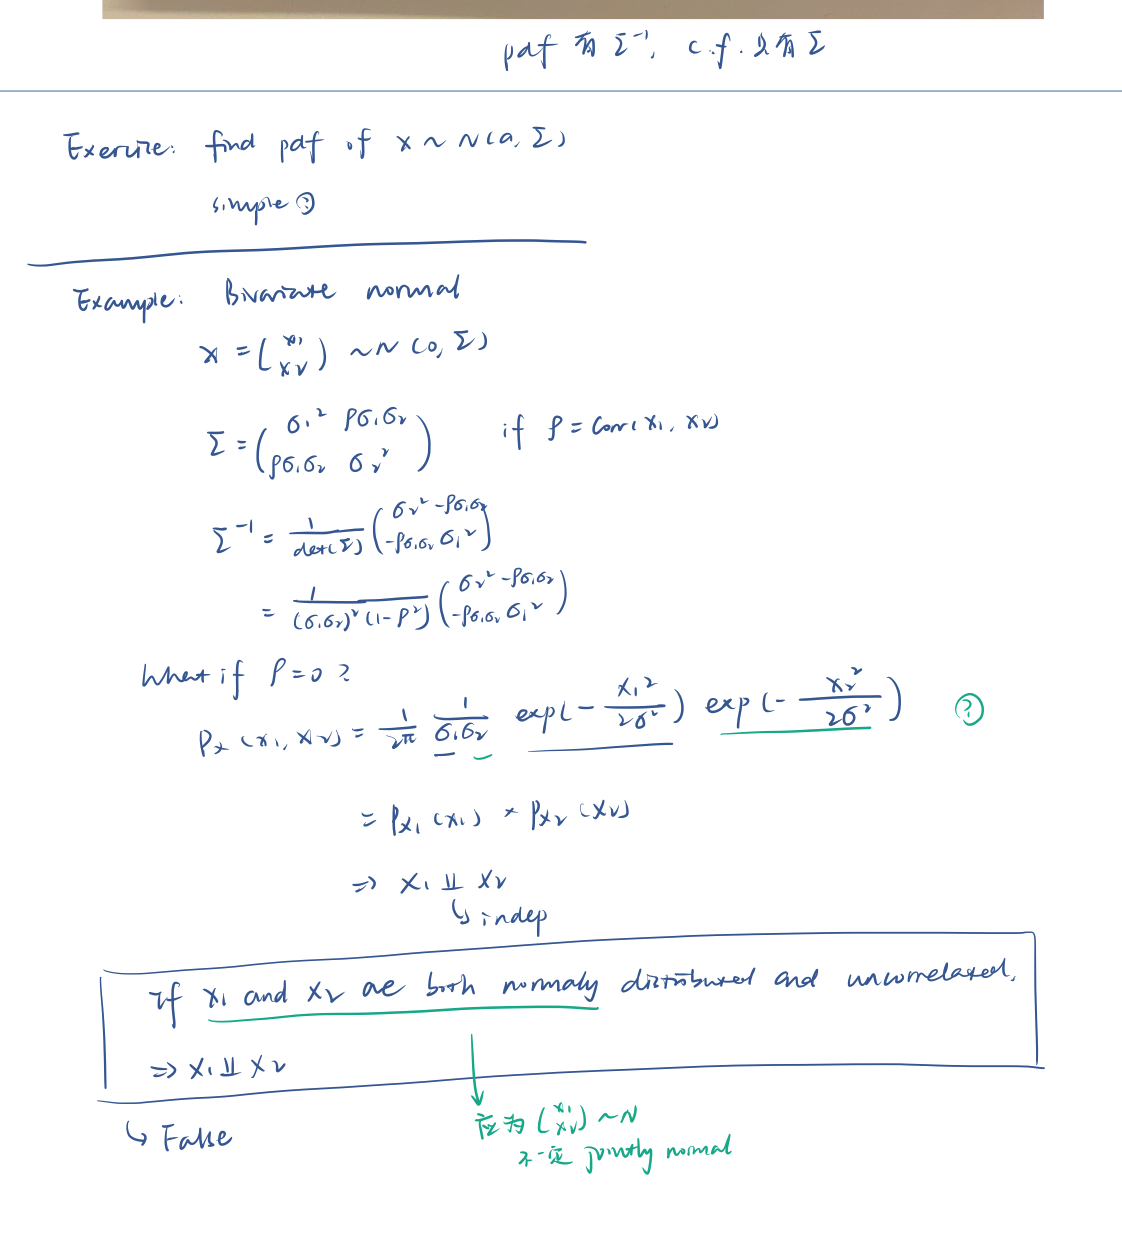 pdf 有 Σ⁻¹, c.f. 只有 Σ
Exercise: find pdf of x ~ N(a, Σ)
simple ?
Example: Bivariate normal
X = (x₁ x₂) ~ N(0, Σ)
Σ = (σ₁² ρσ₁σ₂ ρσ₁σ₂ σ₂²) if ρ = Corr(x₁, x₂)
Σ⁻¹ = 1/det(Σ) (σ₂² -ρσ₁σ₂ -ρσ₁σ₂ σ₁²)
= 1/((σ₁σ₂)²(1-ρ²)) (σ₂² -ρσ₁σ₂ -ρσ₁σ₂ σ₁²)
What if ρ=0 ?
Pₓ(x₁, x₂) = 1/2π 1/σ₁σ₂ exp(-x₁²/2σ²) exp(-x₂²/2σ²) ?
= Pₓ₁(x₁) * Pₓ₂(x₂)
⇒ X₁ ⫫ X₂
↳ indep
If x₁ and x₂ are both normaly distributed and uncorrelated.
⇒ X₁ ⫫ X₂
应为 (x₁ x₂) ~ N
↳ False
不一定 jointly normal